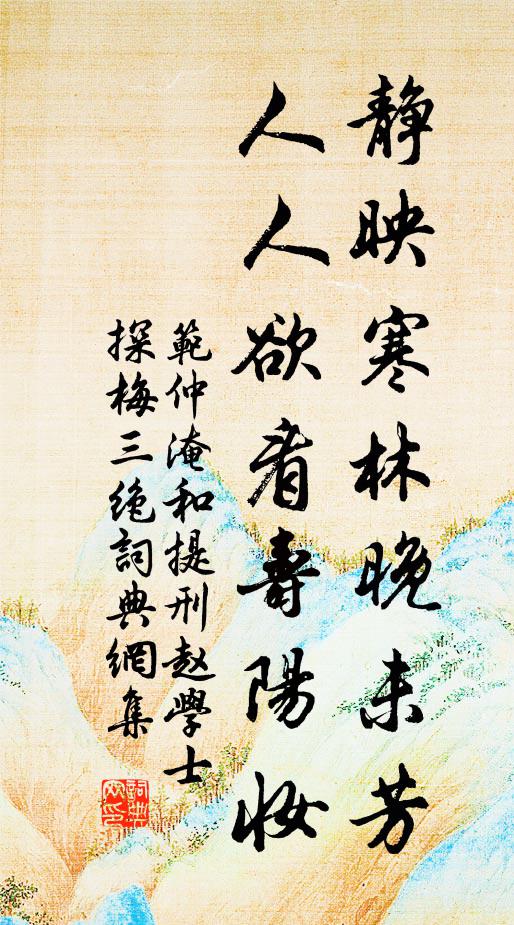 静映寒林晚未芳
人人欲看壽陽妆
範仲淹和提刑赵學士
探梅三绝詞典網集